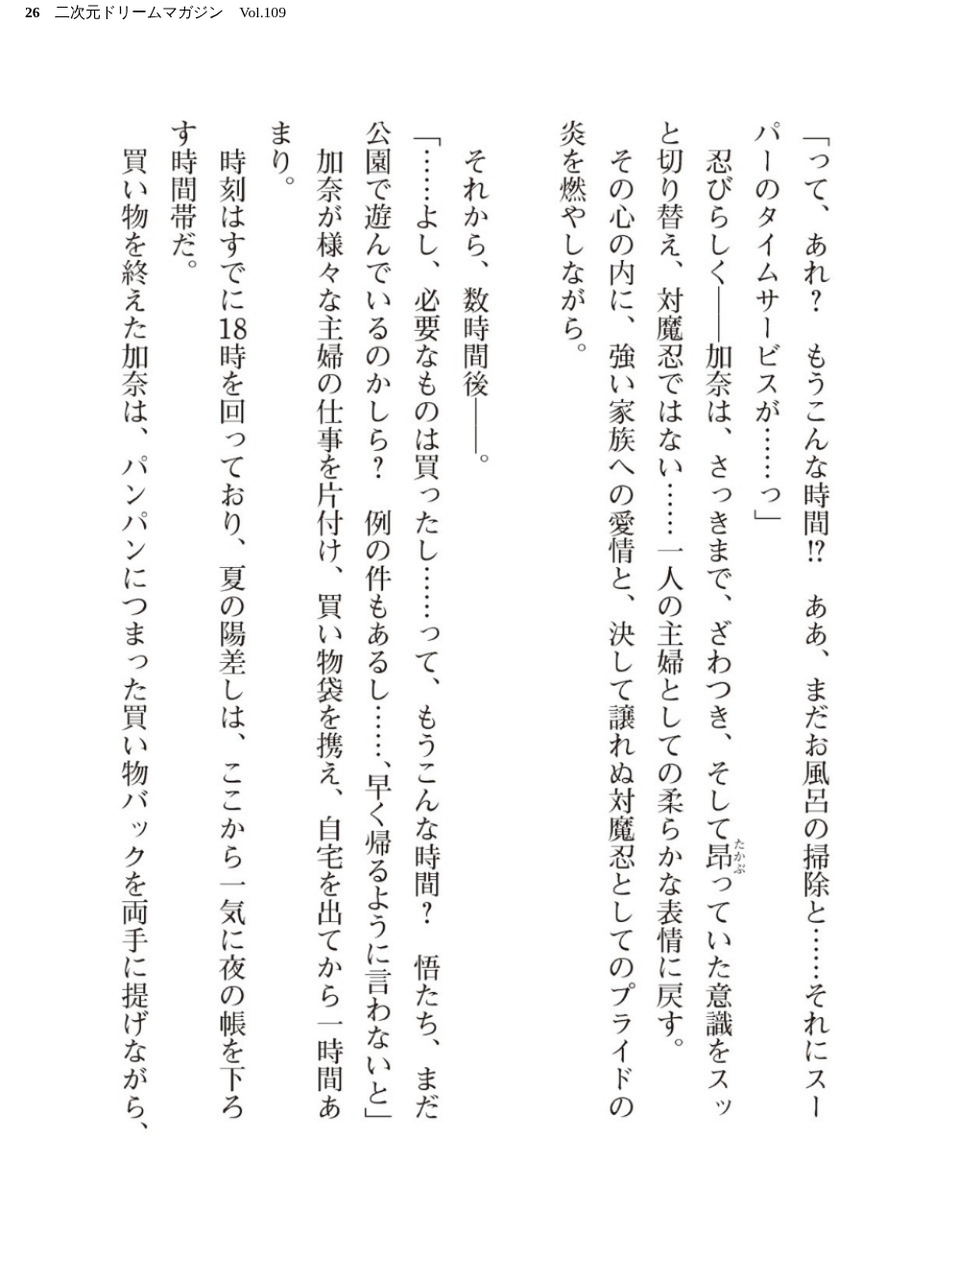 26 二次元ドリームマガジン Vol.109
「って、あれ？　もうこんな時間!?　ああ、まだお風呂の掃除と……それにスー
パーのタイムサービスが……っ」
　忍びらしく――加奈は、さっきまで、ざわつき、そして昂っていた意識をスッ
たかぶ
と切り替え、対魔忍ではない……一人の主婦としての柔らかな表情に戻す。
　その心の内に、強い家族への愛情と、決して譲れぬ対魔忍としてのプライドの
炎を燃やしながら。
　それから、数時間後――。
「……よし、必要なものは買ったし……って、もうこんな時間？　悟たち、まだ
公園で遊んでいるのかしら？　例の件もあるし……、早く帰るように言わないと」
　加奈が様々な主婦の仕事を片付け、買い物袋を携え、自宅を出てから一時間あ
まり。
　時刻はすでに18時を回っており、夏の陽差しは、ここから一気に夜の帳を下ろ
す時間帯だ。
　買い物を終えた加奈は、パンパンにつまった買い物バックを両手に提げながら、